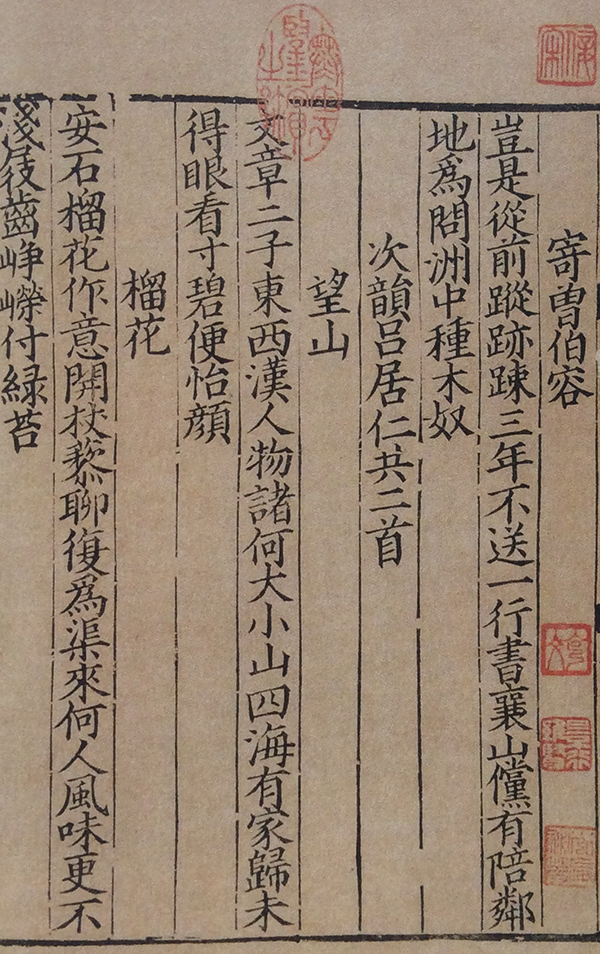 寄曽伯容
豈是從前蹤跡踈三年不送一行書襄山儻有陪鄰
地爲問洲中種木奴
次韻吕居仁共二首
望山
文章二子東西漢人物諸何大小山四海有家歸未
得眼看寸碧便怡顔
榴花
安石榴花作意開杖藜聊復爲渠來何人風味更不
淺屐齒峥嶸付緑苔